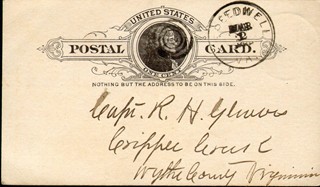 UNITED STATES
POSTAL CARD.
ONE CENT
NOTHING BUT THE ADDRESS TO BE ON THIS SIDE.
Capt. R. H.
Cripple Creek
Wythe County Virginia